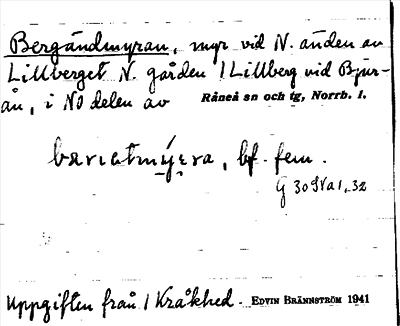 Bergändmyran, myr vid N. änden av
Lillberget N. gården 1 Lillberg vid Bjur-
ån, i NO delen av Råneå sn och tg, Norrb. l.
bf. fem.
G 30 SV a 1, 32
Uppgiften från 1 Kråkhed. EDVIN BRÄNNSTRÖM 1941